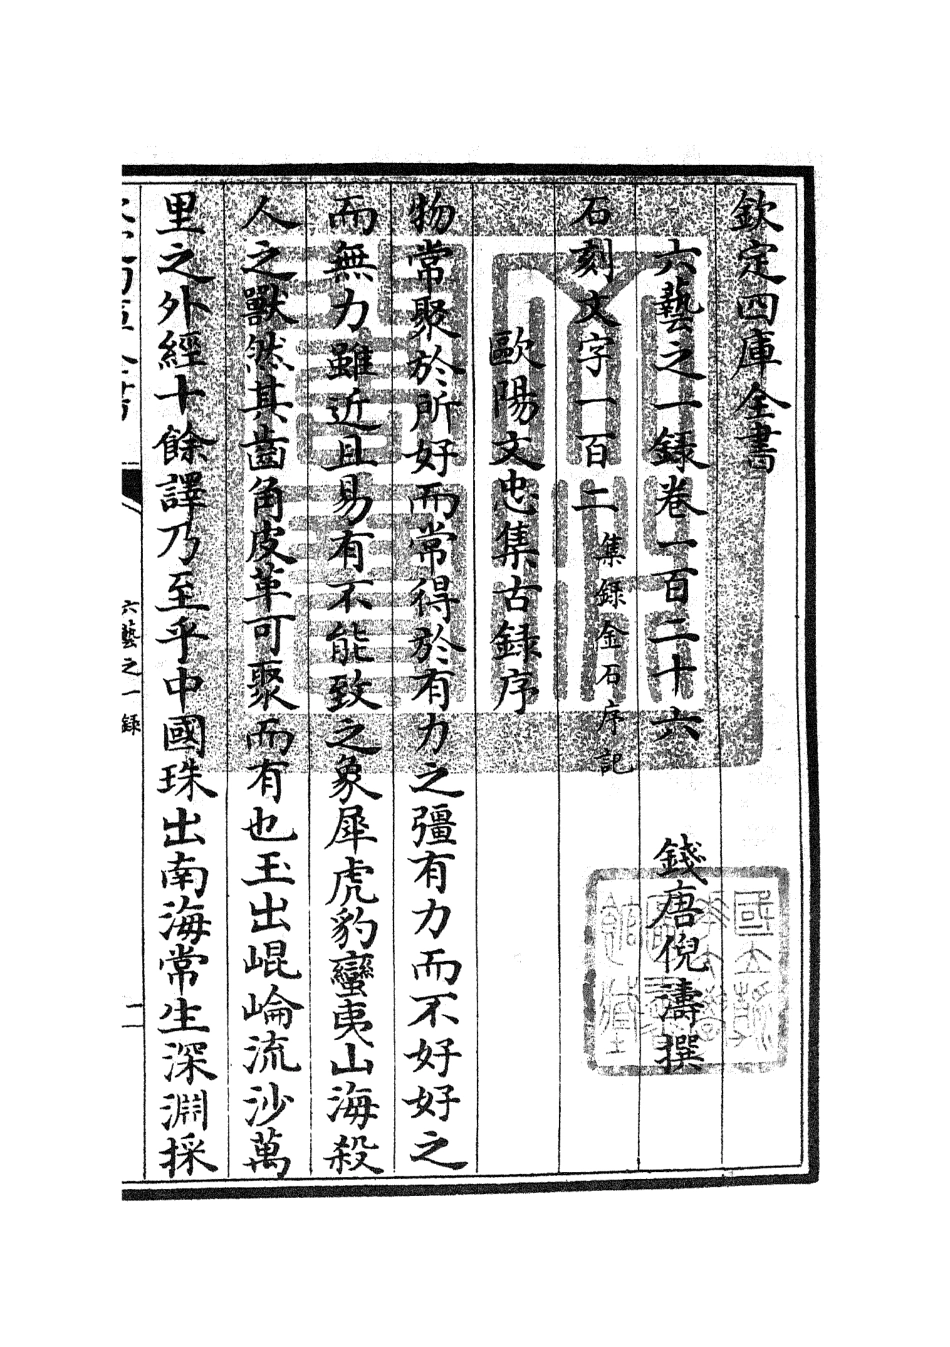 欽定四庫全書
六藝之一錄卷一百二十六
錢唐倪濤撰
石刻文字一百二 集錄金石序記
歐陽文忠集古錄序
物常聚於所好而常得於有力之彊有力而不好好之
而無力雖近且易有不能致之象犀虎豹蠻夷山海殺
人之獸然其齒角皮革可聚而有也玉出崐崘流沙萬
里之外經十餘譯乃至乎中國珠出南海常生深淵採
六藝之一錄